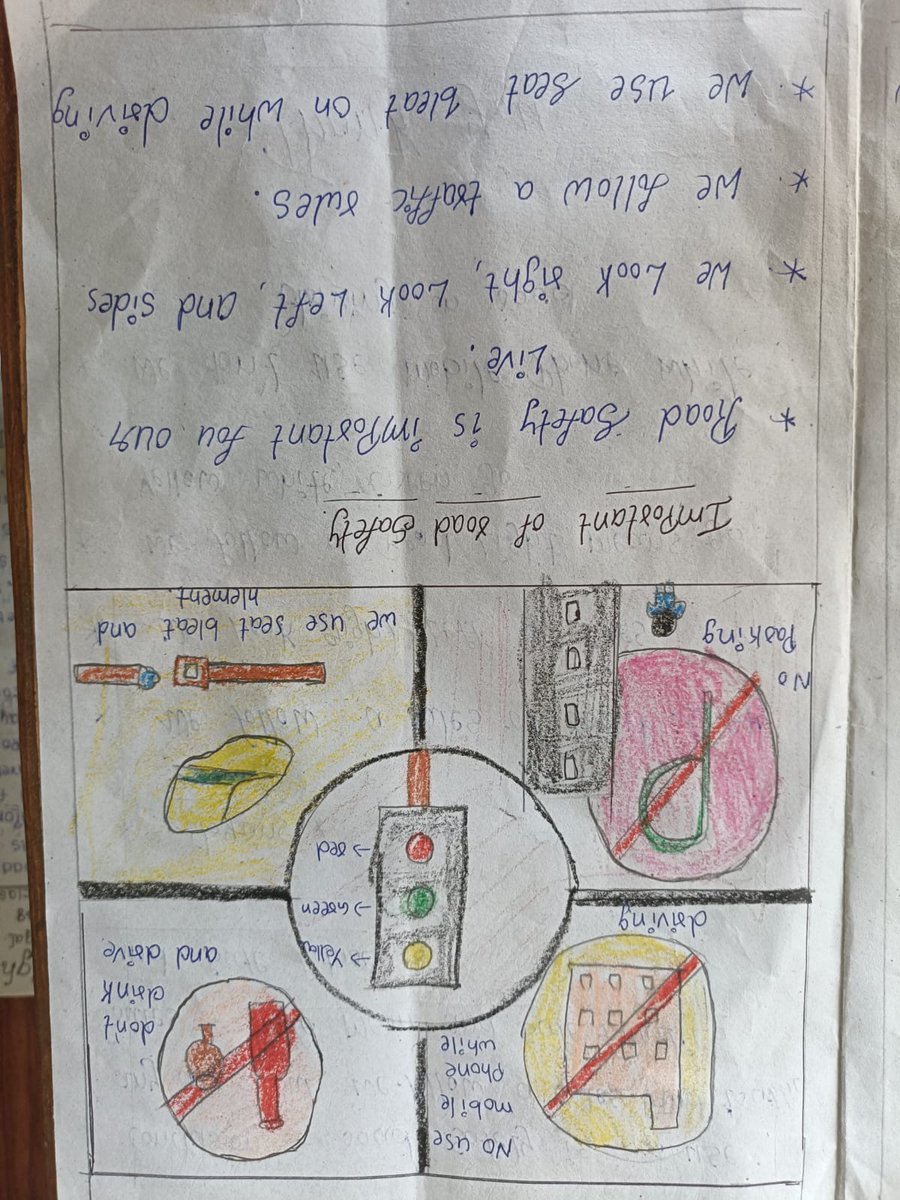 No use
mobile
phone
while
driving
don't
drink
and drive
→ Yello
→ Green
→ red
No
Parking
we use seat bleat and
hlement.
Important of road Safety.
* Road Safety is important fou our
Live.
* We Look right, Look Left, and sides
* We follow a traffic rules.
* We use seat bleat on while driving